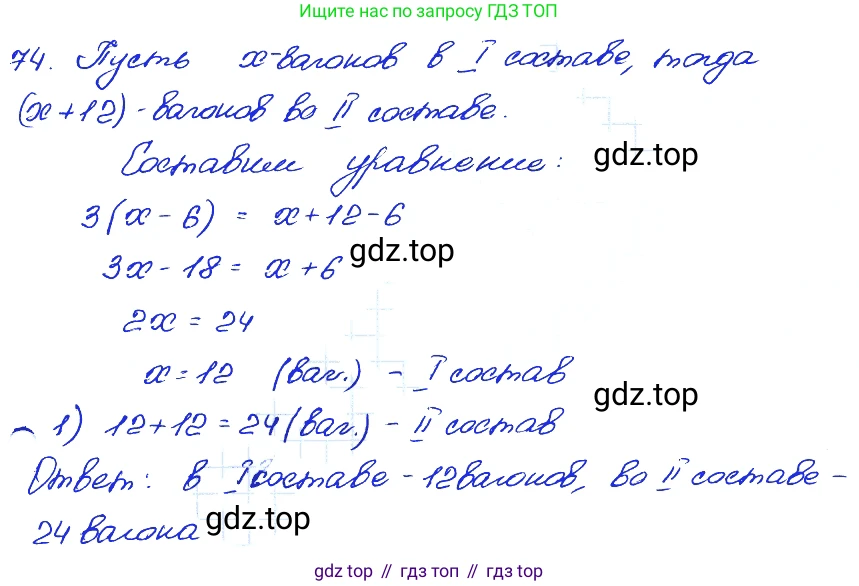 Ищите нас по запросу ГДЗ ТОП
74. Пусть x-вагонов в I составе, тогда
(x+12)-вагонов во II составе.
Составим уравнение:
gdz.top
3(x-6) = x+12-6
gdz.top
3x-18 = x+6
2x = 24
x=12 (ваг.) - I состав
gdz.top
1) 12+12=24(ваг.)-II состав
Ответ: в I составе-12 вагонов, во II составе-
24 вагона
gdz.top
gdz.top // гдз топ // gdz.top